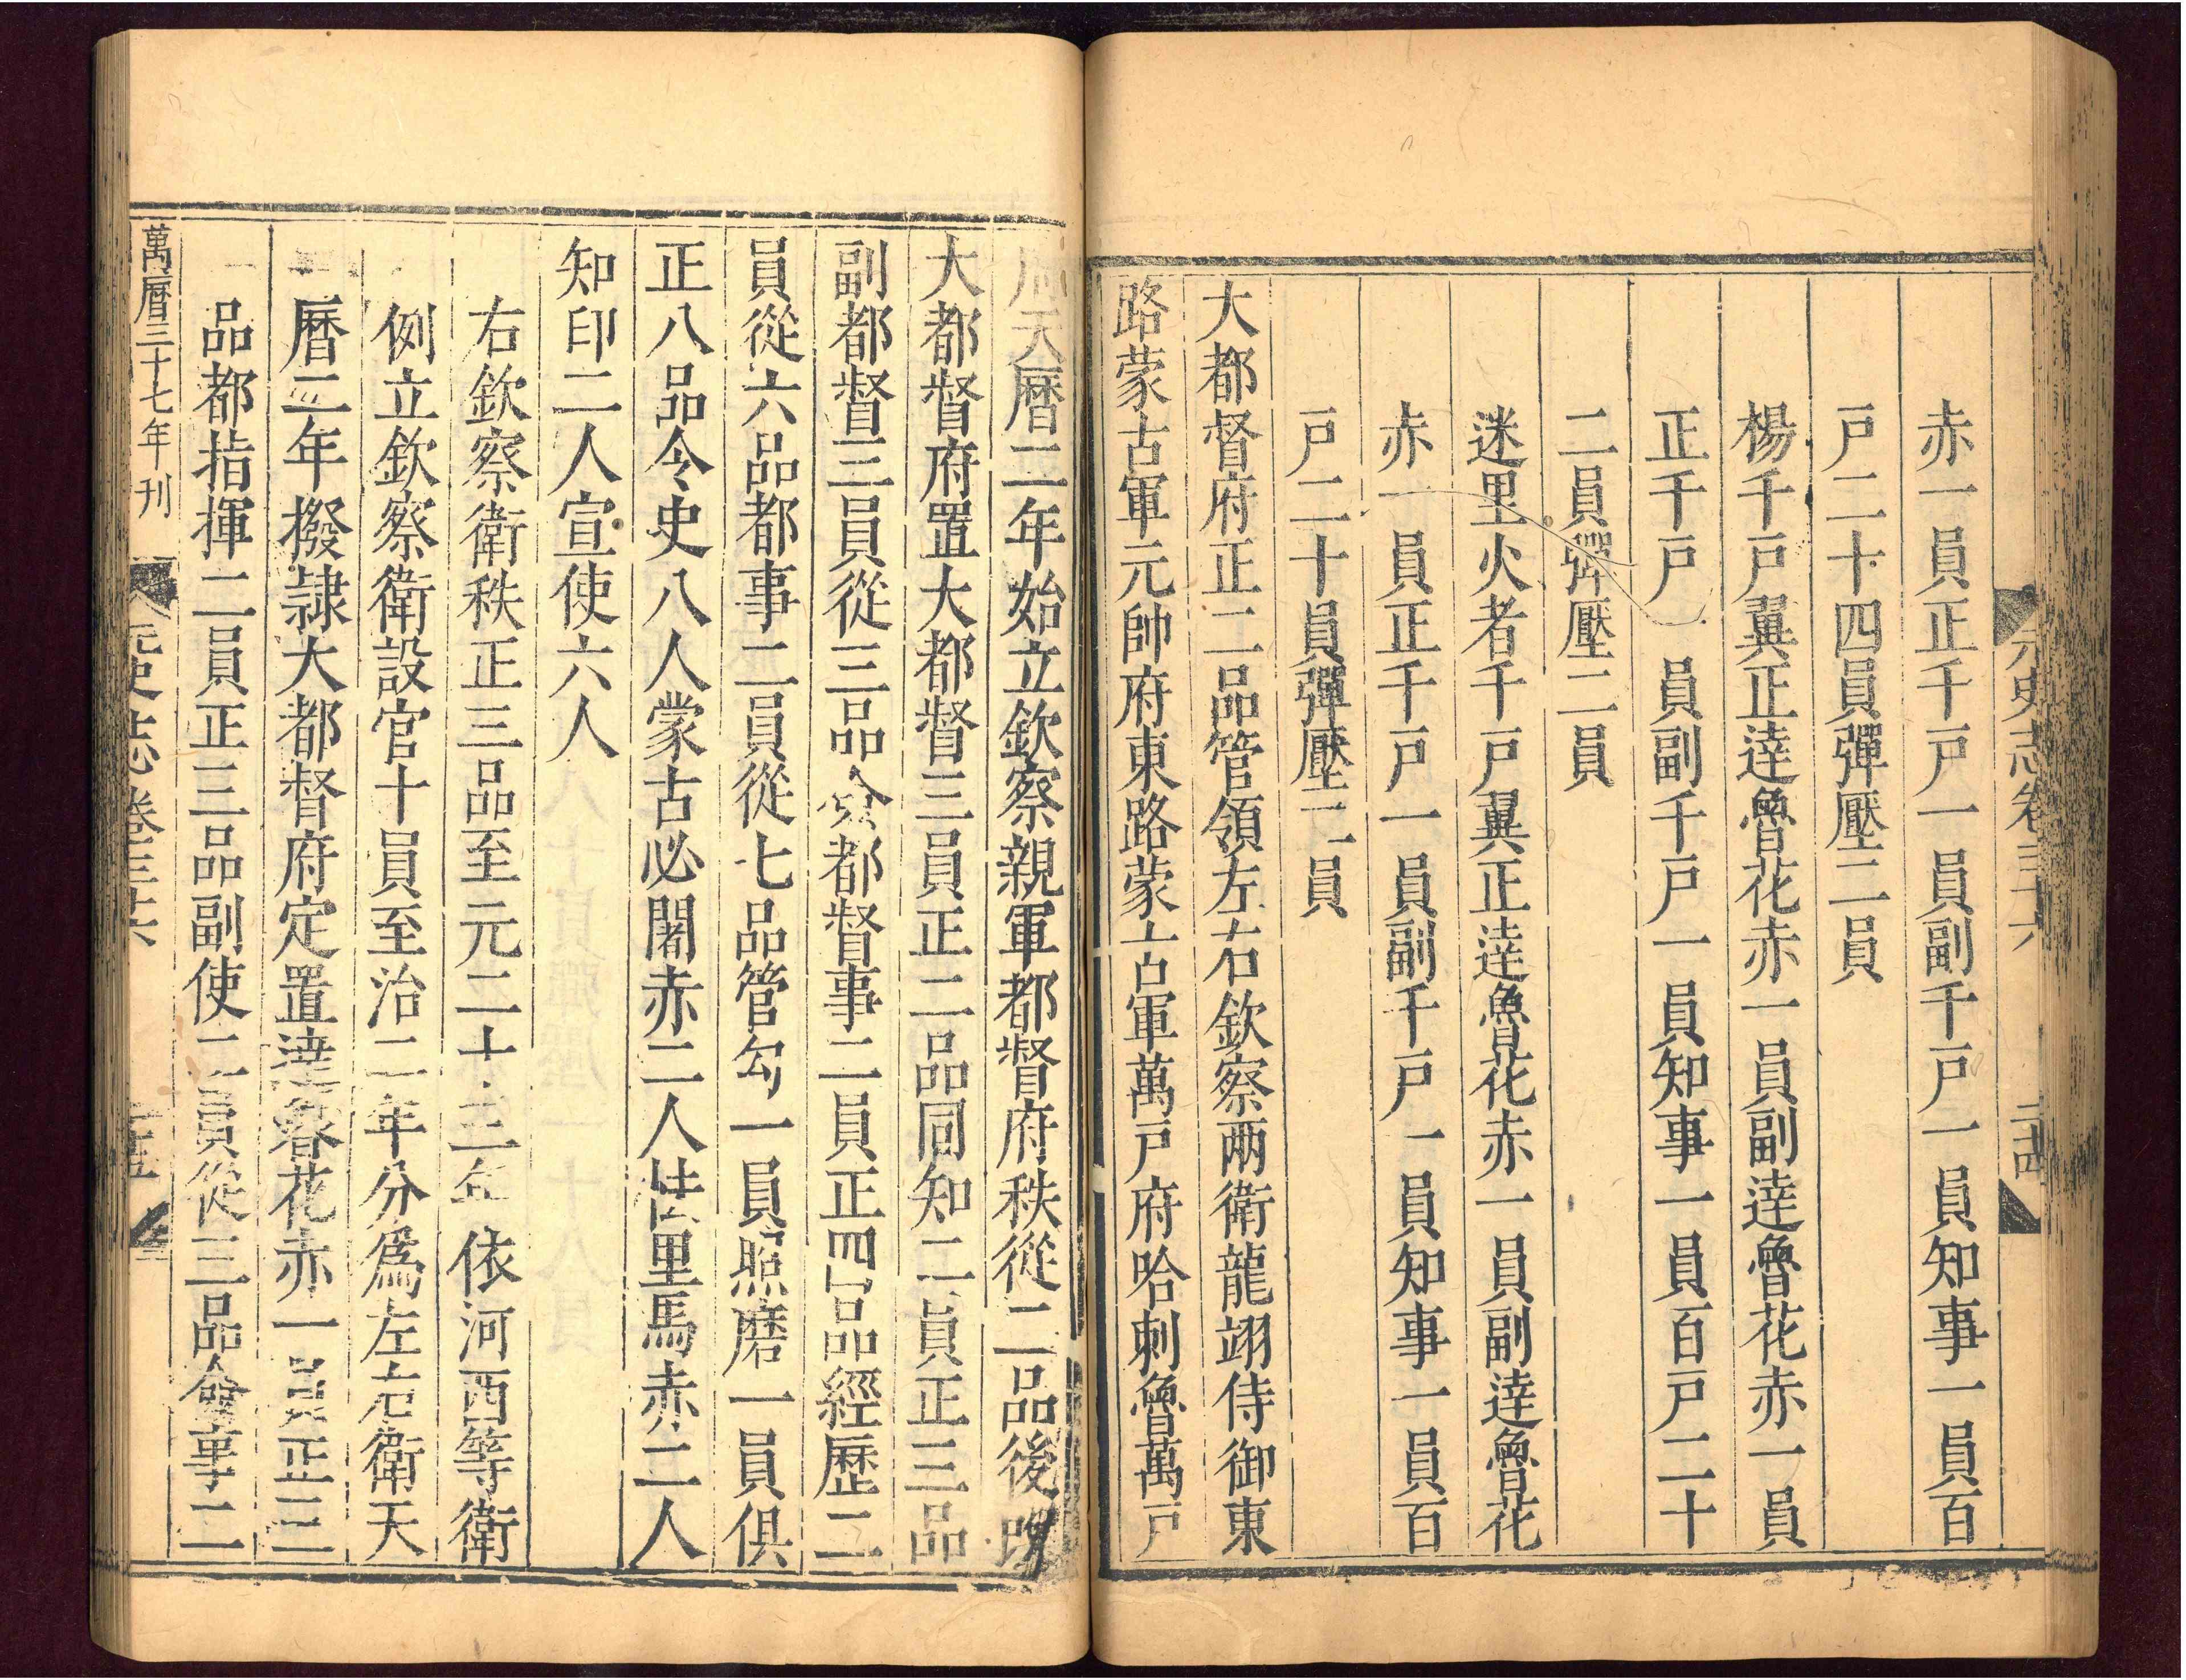 元史志卷三十六
二十四
赤一員正千戸一員副千戸一員知事一員百
戸二十四員彈壓二員
楊千戸翼正達魯花赤一員副達魯花赤一員
正千戸一員副千戸一員知事一員百戸二十
二員彈壓二員
迷里火者千戸翼正達魯花赤一員副達魯花
赤一員正千戸一員副千戸一員知事一員百
戸二十員彈壓二員
大都督府正二品管領左右欽察两衛龍翊侍御東
路蒙古軍元帥府東路蒙古軍萬戸府哈剌魯萬戸
府天曆二年始立欽察親軍都督府秩從二品後改
大都督府置大都督三員正二品同知二員正三品
副都督三員從三品僉都督事二員正四品經歷二
員從六品都事二員從七品管勾一員照磨一員俱
正八品令史八人蒙古必闍赤二人怯里馬赤二人
知印二人宣使六人
右欽察衛秩正三品至元二十三年依河西等衛
例立欽察衛設官十員至治二年分爲左右衛天
曆二年撥隷大都督府定置達魯花赤一員正三
品都指揮二員正三品副使二員從三品僉事二
元史志卷三十六
二十五
萬曆三十七年刊